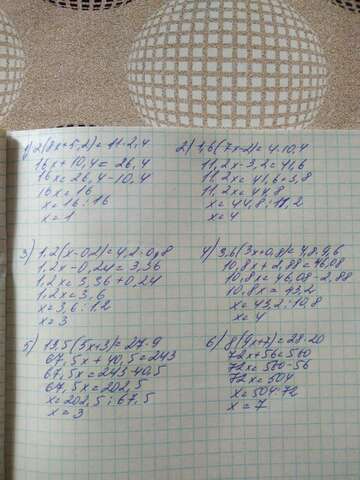 1) 2(8x+5,2)=11·2,4
16x+10,4=26,4
16x=26,4-10,4
16x=16
x=16:16
x=1
2) 1,6(7x-2)=4·10,4
11,2x-3,2=41,6
11,2x=41,6+3,8
11,2x=44,8
x=44,8:11,2
x=4
3) 1,2(x-0,2)=4,2·0,8
1,2x-0,24=3,36
1,2x=3,36+0,24
1,2x=3,6
x=3,6:1,2
x=3
4) 3,6(3x+0,8)=4,8·9,6
10,8x+2,88=46,08
10,8x=46,08-2,88
10,8x=43,2
x=43,2:10,8
x=4
5) 13,5(5x+3)=27·9
67,5x+40,5=243
67,5x=243-40,5
67,5x=202,5
x=202,5:67,5
x=3
6) 8(9x+7)=28·20
72x+56=560
72x=560-56
72x=504
x=504:72
x=7